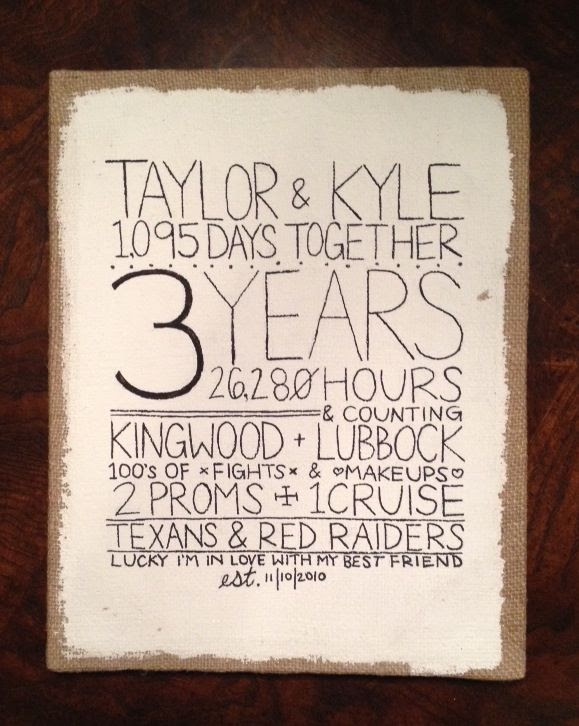 TAYLOR & KYLE
1,095 DAYS TOGETHER
3 YEARS
26,280 HOURS
& COUNTING
KINGWOOD + LUBBOCK
100'S OF *FIGHTS* & ♡MAKEUPS♡
2 PROMS + 1 CRUISE
TEXANS & RED RAIDERS
LUCKY I'M IN LOVE WITH MY BEST FRIEND
est. 11|10|2010